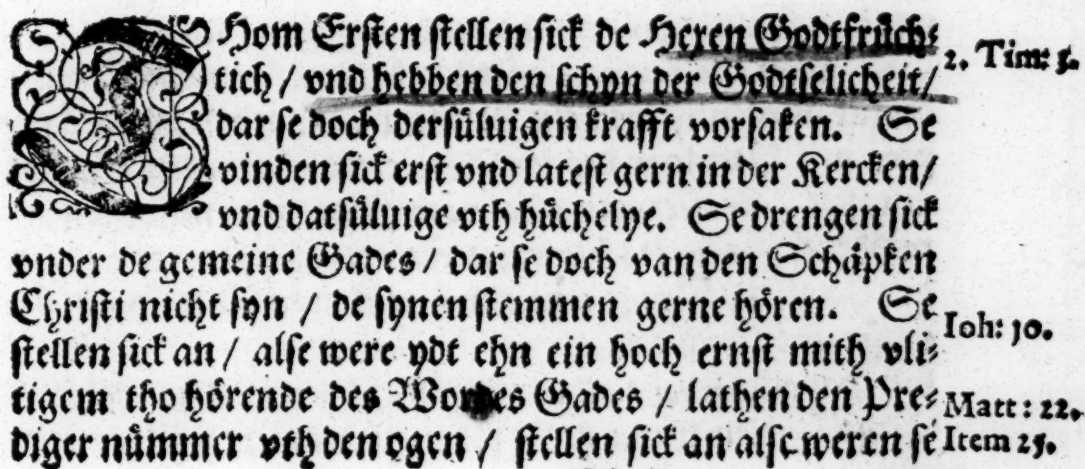 THom Ersten stellen sick de Hexen Godtfrüch⸗
2. Tim: 3.
tich / vnd hebben den schyn der Godtselicheit /
dar se doch dersüluigen krafft vorsaken. Se
vinden sick erst vnd latest gern in der Kercken /
vnd datsüluige vth hüchelye. Se drengen sick
vnder de gemeine Gades / dar se doch van den Schäpken
Christi nicht syn / de synen stemmen gerne hören. Se
Ioh: 10.
stellen sick an / alse were ydt ehn ein hoch ernst mith vli⸗
tigem tho hörende des Wordes Gades / lathen den Pre⸗
Matt: 22.
diger nümmer vth den ogen / stellen sick an alse weren se
Item 25.